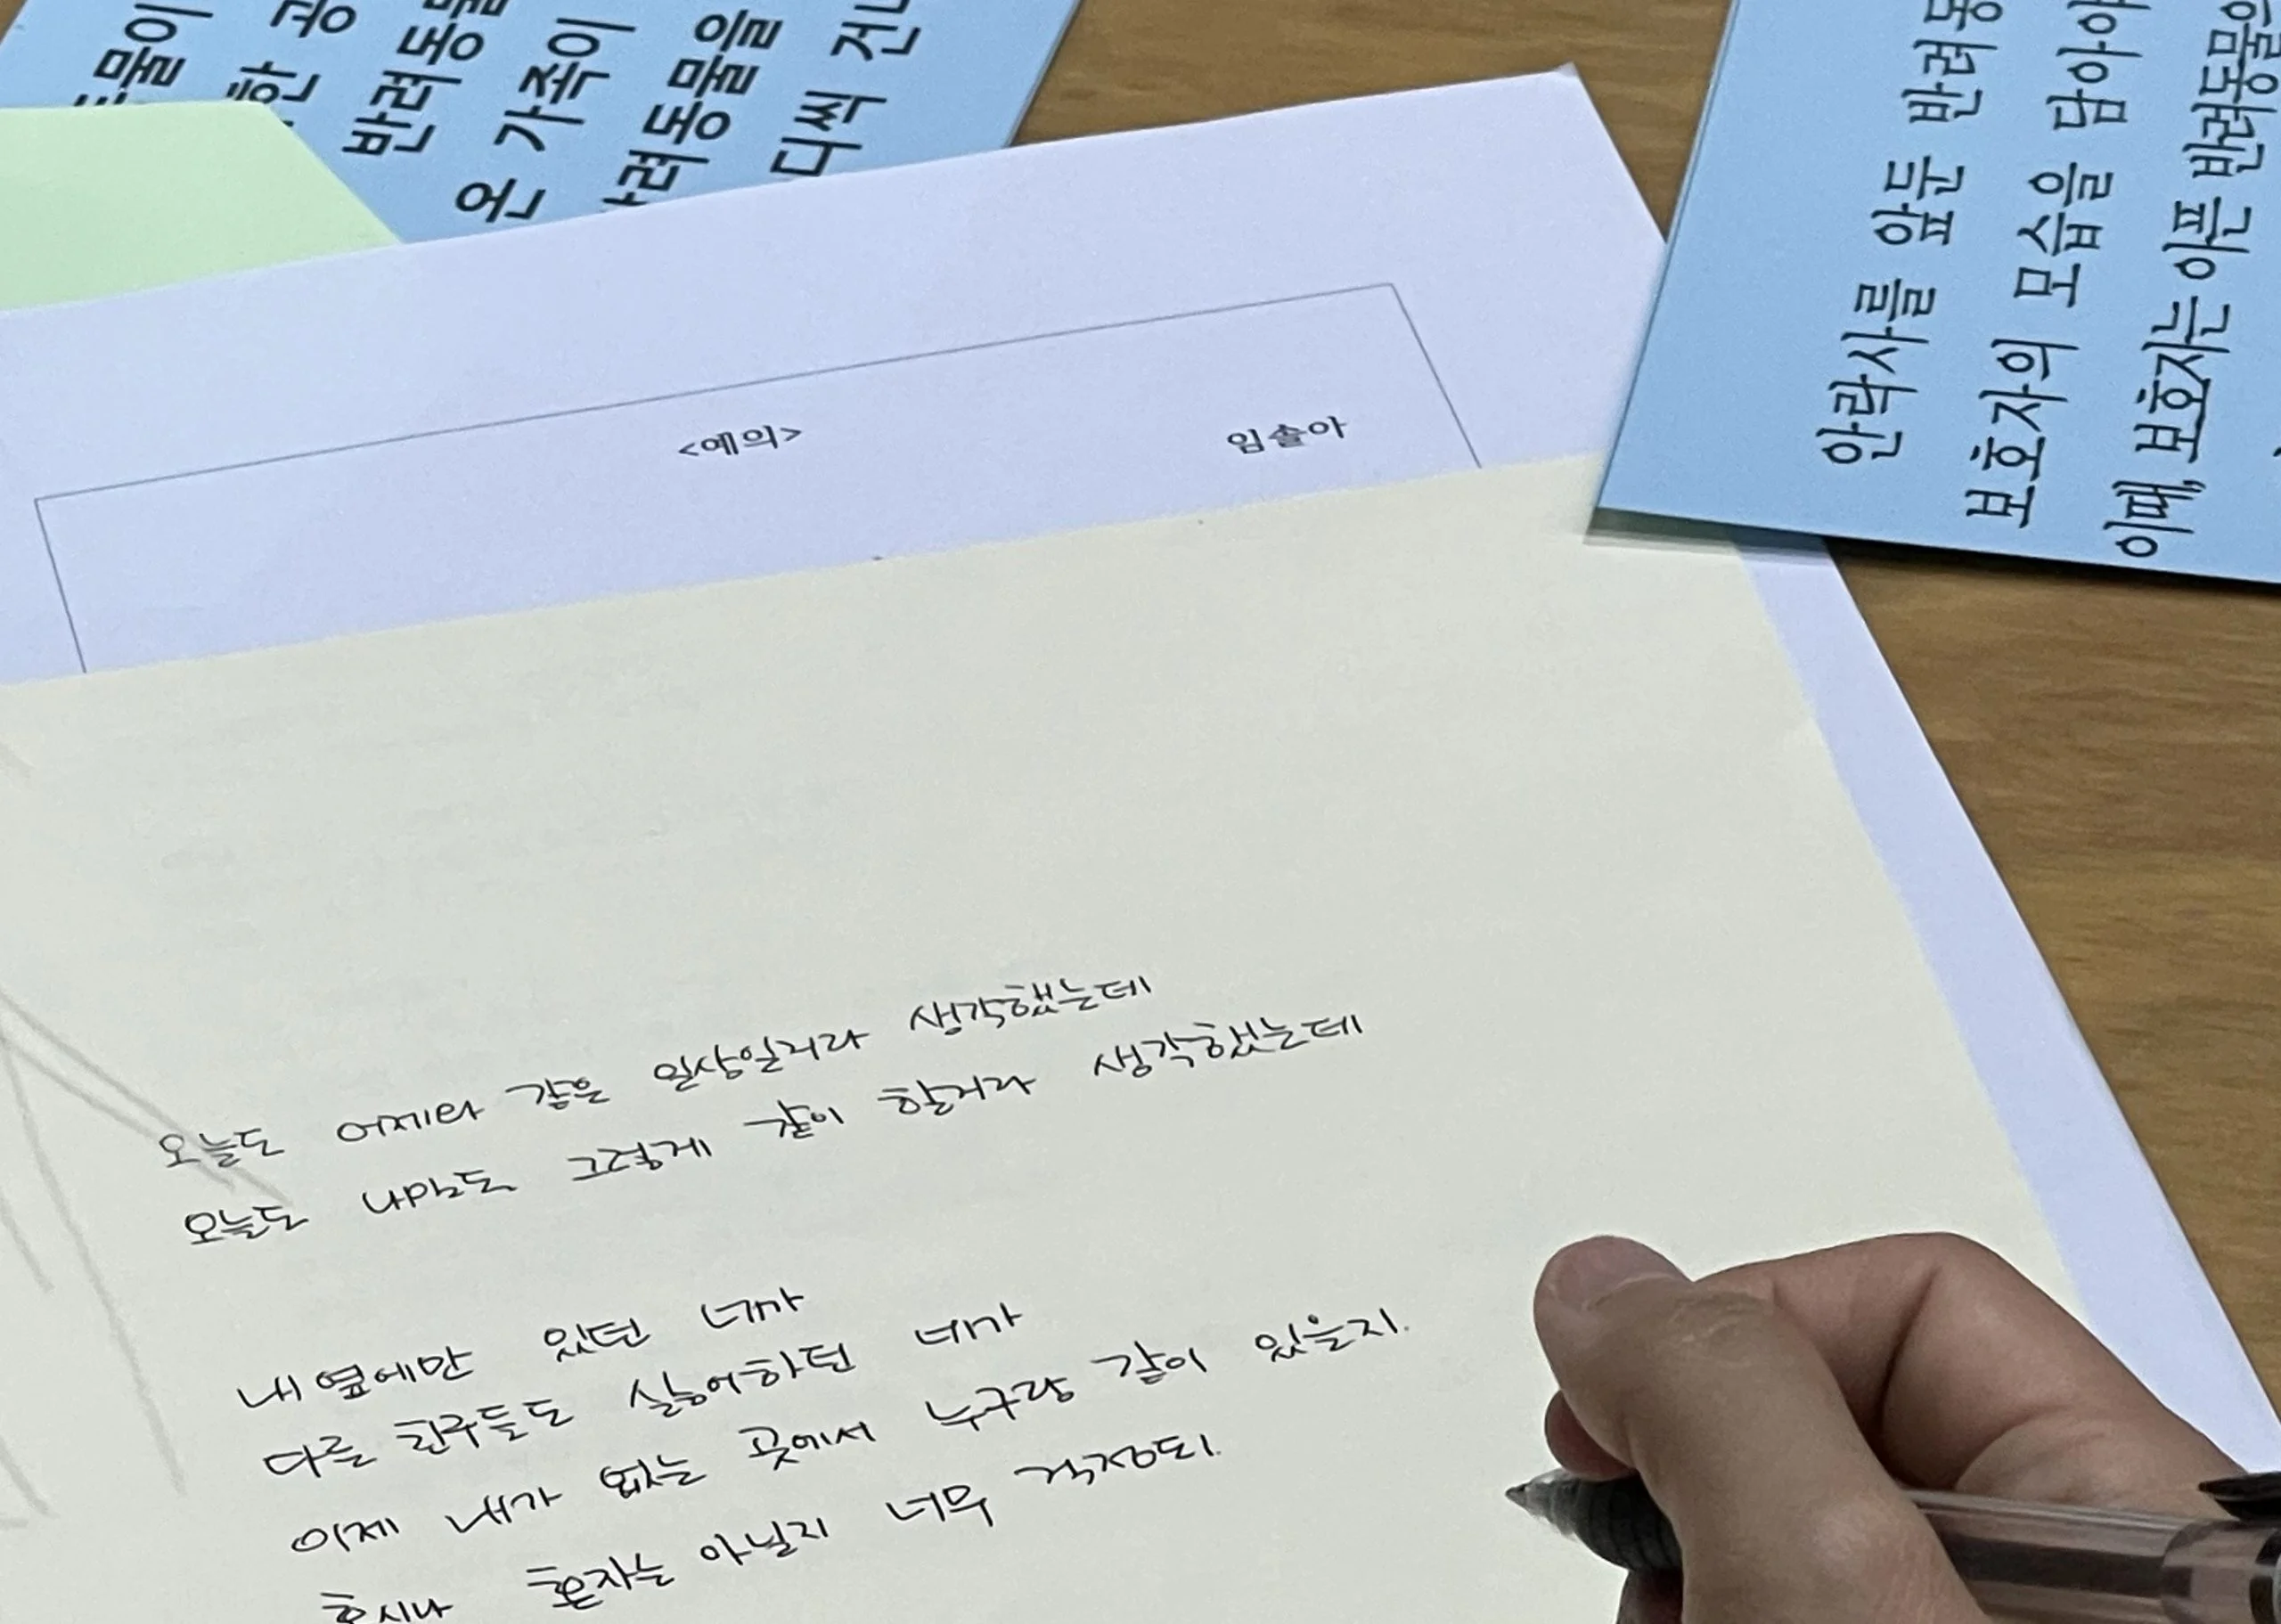 물이
한 공
반려동물
온 가족이
려동물을
디씩 건네
안락사를 앞둔 반려동
보호자의 모습을 담아
이때, 보호자는 아픈 반려동물의
<예의> 임솔아
오늘도 어제와 같은 일상일거라 생각했는데
오늘도 나만도 그렇게 같이 할거라 생각했는데
내 옆에만 있던 너가
다른 친구들도 싫어하던 너가
이제 내가 없는 곳에서 누구랑 같이 있을지.
혹시나 혼자는 아닐지 너무 걱정되.